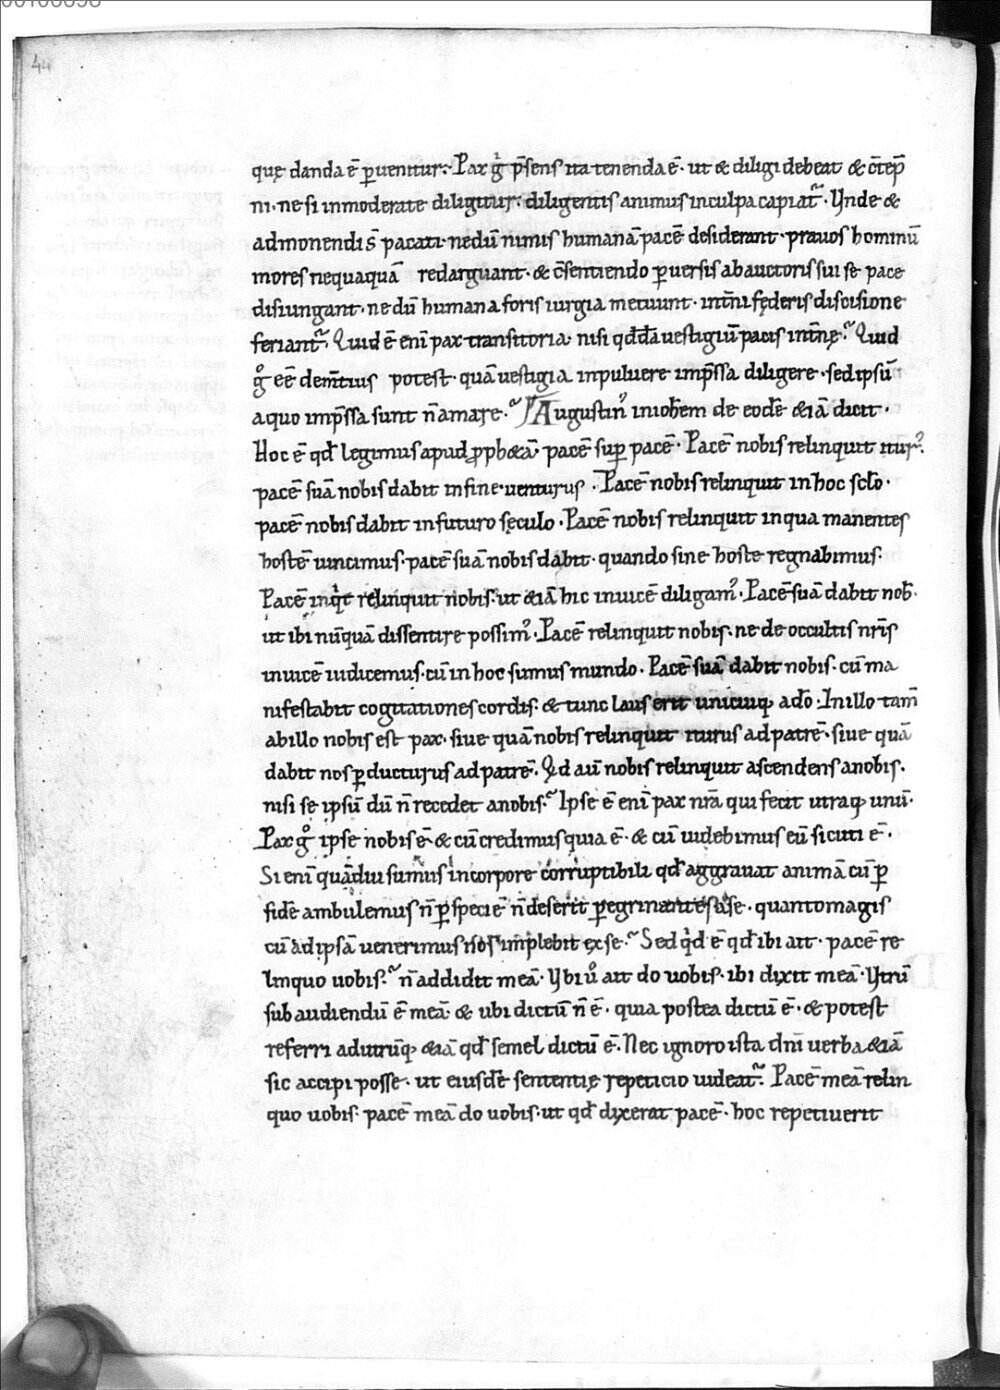 44
quę danda ē ꝑuenitur. Pax g̊ p̄sens ita tenenda ē. ut & diligi debeat & c̄tēp
ni. ne si inmoderate diligitur. diligentis animus in culpa capiat᷑. Vnde &
admonendi s̄ pacati. ne dū nimis humanā pacē desiderant. prauos hominū
mores nequaquā redarguant. & c̄sentiendo ꝑuersis ab auctoris sui se pace
disiungant. ne dū humana foris iurgia metuunt. int̄ni fęderis discisione
feriant᷑. Quid ē eni pax transitoria. nisi qđdā uestigiū pacis int̄nę. Quid
g̊ eē dem̄tius potest. quā uestigia in puluere imp̄ssa diligere. sed ipsū
a quo imp̄ssa sunt n̄ amare. Augustin᷒ in ioh̄em de eodē &iā dicit.
Hoc ē qđ legimus apud ꝓph&ā. pacē suꝑ pacē. Pacē nobis relinquit itur᷒.
pacē suā nobis dabit in fine uenturus. Pacē nobis relinquit in hoc sc̄lo.
pacē nobis dabit in futuro sęculo. Pacē nobis relinquit in qua manentes
hostē uincimus. pacē suā nobis dabit. quando sine hoste regnabimus.
Pacē inqͥt relinquit nobis. ut &iā hic inuicē diligam᷒. Pacē suā dabit nob̄.
ut ibi nūquā dissentire possim᷒. Pacē relinquit nobis. ne de occultis nr̄is
inuicē iudicemus. cū in hoc sumus mundo. Pacē suā dabit nobis. cū ma
nifestabit cogitationes cordis. & tunc laus erit unicuiq; a dō. In illo tam̄
ab illo nobis est pax. siue quā nobis relinquit iturus ad patrē. siue quā
dabit nos ꝑducturus ad patrē. Qd au nobis relinquit ascendens a nobis.
nisi se ipsū dū n̄ recedet a nobis. Ipse ē eni pax nr̄a qui fecit utraq; unū.
Pax g̊ ipse nobis ē. & cū credimus quia ē. & cū uidebimus eū sicuti ē.
Si eni quādiu sumus in corpore corruptibili qđ aggrauat animā cū ꝑ
fidē ambulemus n̄ ꝑ speciē n̄ deserit ꝑegrinantes a se. quanto magis
cū ad ipsā uenerimus nos implebit ex se. Sed qͥd ē qđ ibi ait. pacē re
linquo uobis. n̄ addidit meā. Vbi ů ait do uobis. ibi dixit meā. Vtrū
subaudiendū ē meā. & ubi dictū n̄ ē. quia postea dictū ē. & potest
referri ad utrūq; &iā qđ semel dictū ē. Nec ignoro ista dn̄i uerba &iā
sic accipi posse. ut eiusdē sententię repeticio uideat᷑. Pacē meā relin
quo uobis. pacē meā do uobis. ut qđ dixerat pacē. hoc repetiuerit